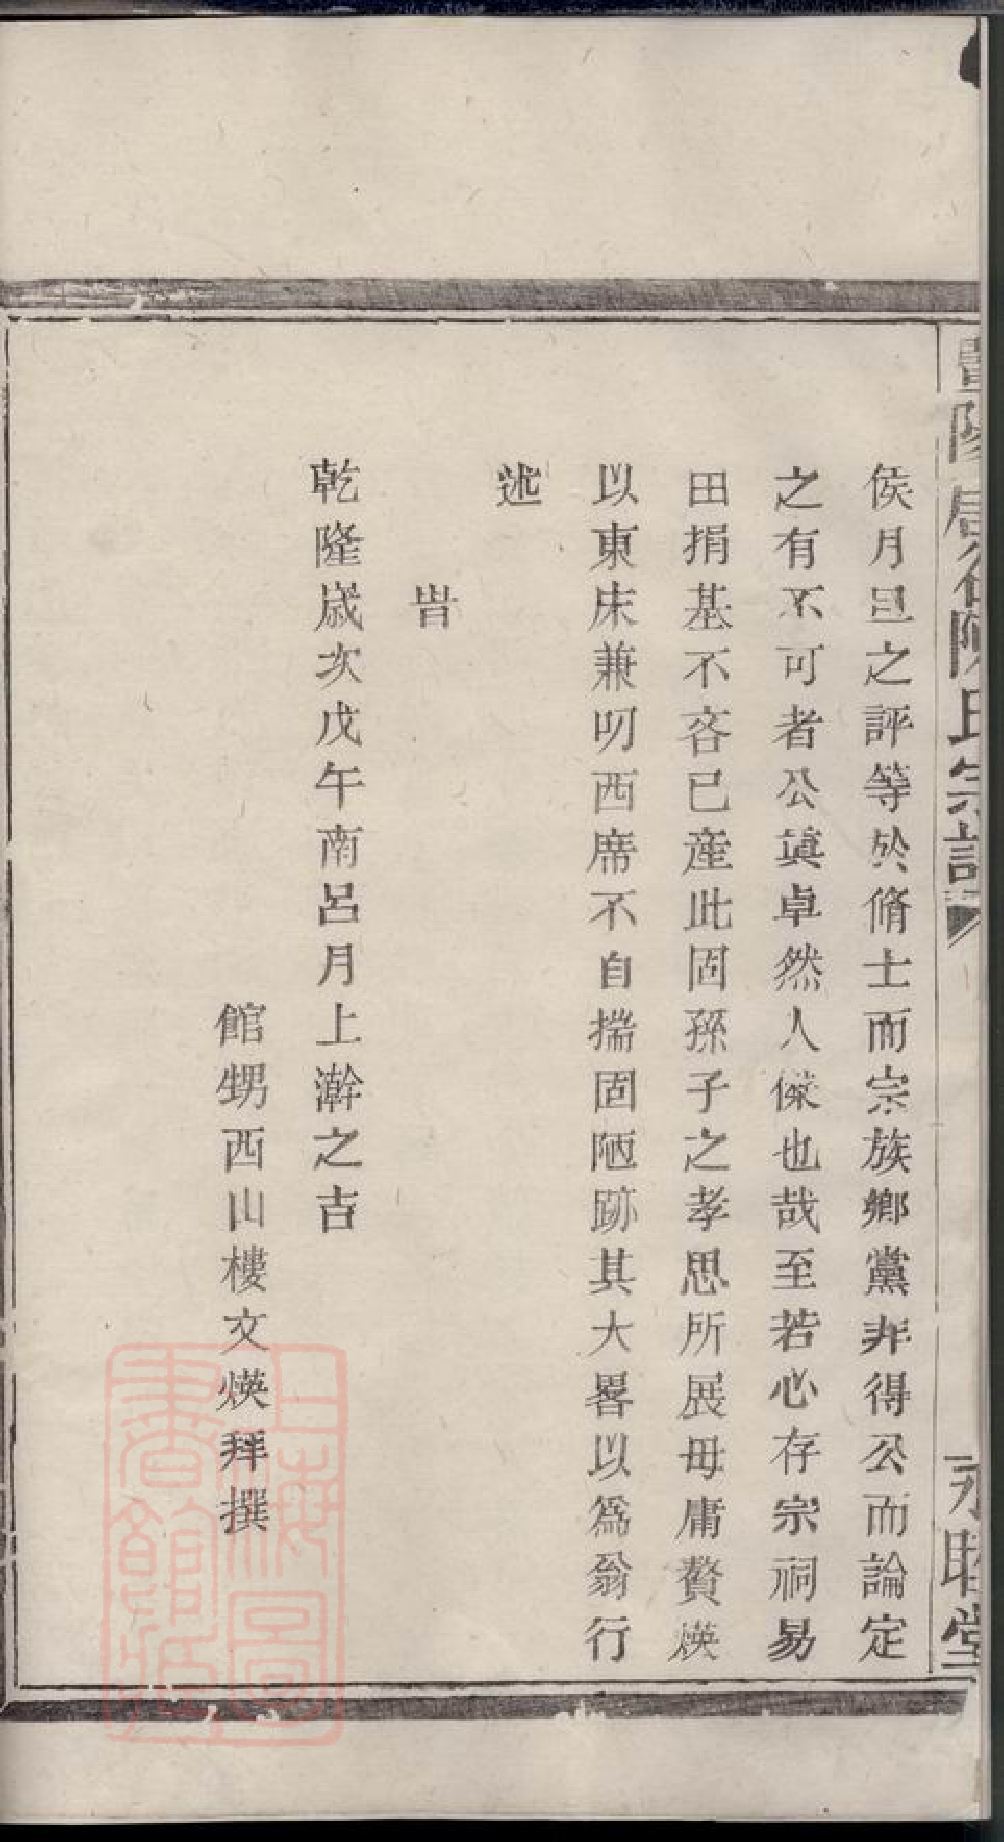 暨陽
陳氏宗譜
永睦堂
侯月旦之評等於脩士而宗族鄉黨非得公而論定
之有不可者公眞卓然人傑也哉至若心存宗祠易
田捐基不吝已産此固孫子之孝思所展毋庸贅煐
以東床兼叨西席不自揣固陋跡其大畧以爲翁行
述
旹
乾隆歲次戊午南呂月上澣之吉
館甥西山樓文煐拜撰
上海圖
書館藏